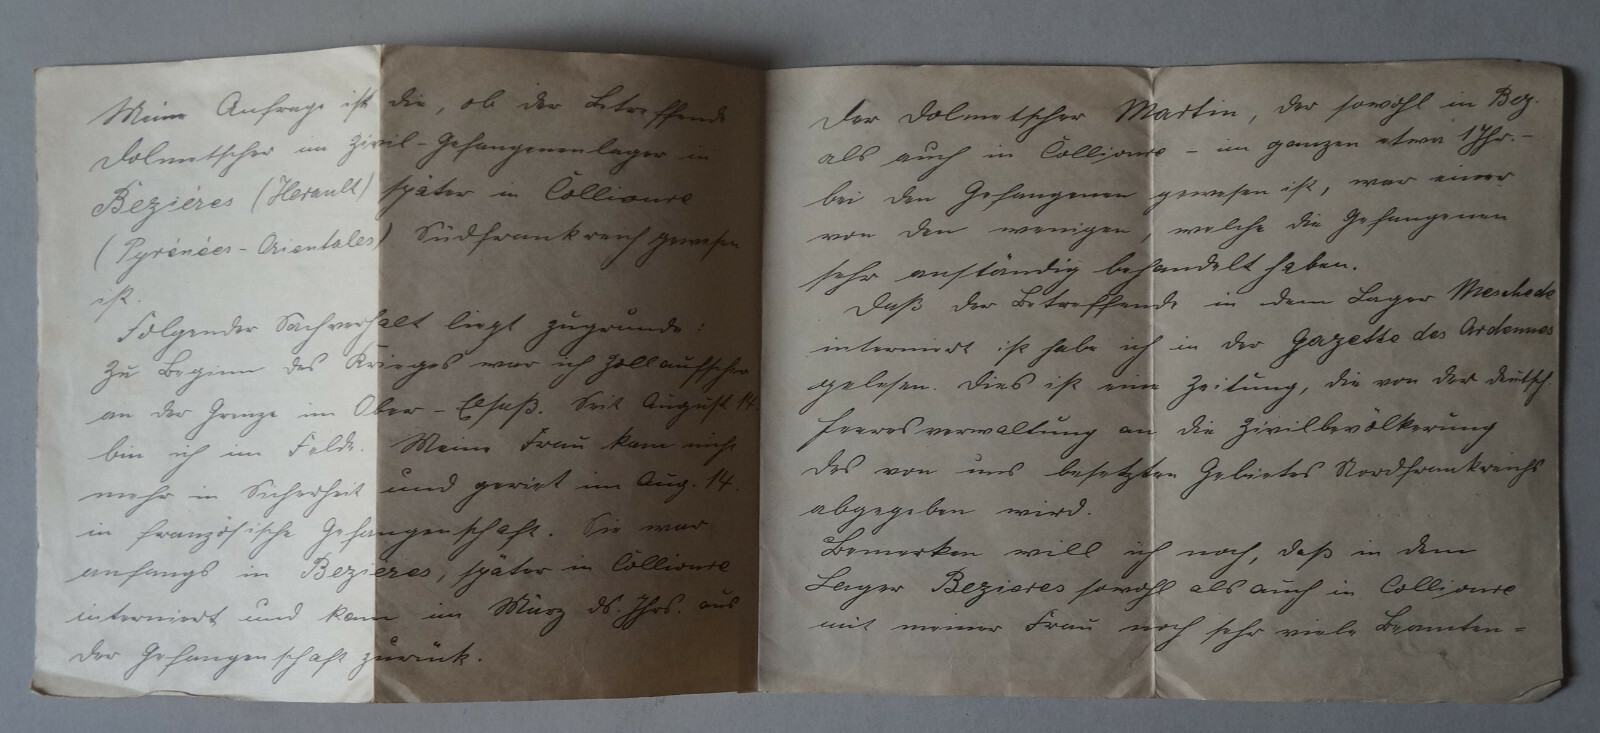 Meine Anfrage ist die, ob der Betreffende
Dolmetscher im Zivil-Gefangenenlager in
Bezières (Herault) später in Collioure
(Pyrénées-Orientales) Südfrankreich gewesen
ist.
Folgender Sachverhalt liegt zugrunde:
Zu Beginn des Krieges war ich Zollaufseher
an der Grenze im Ober-Elsaß. Seit August 14.
bin ich im Felde. Meine Frau kam nicht
mehr in Sicherheit und geriet im Aug. 14.
in französische Gefangenschaft. Sie war
anfangs in Bezières, später in Collioure
interniert und kam im März ds. Jhrs. aus
der Gefangenschaft zurück.
Der Dolmetscher Martin, der sowohl in Bez.
als auch in Collioure - im ganzen etwa 1 Jhr. -
bei den Gefangenen gewesen ist, war einer
von den wenigen, welche die Gefangenen
sehr anständig behandelt haben.
Daß der Betreffende in dem Lager Meschede
interniert ist habe ich in der Gazette des Ardennes
gelesen. Dies ist eine Zeitung, die von der deutsch.
Heeresverwaltung an die Zivilbevölkerung
des von uns besetzten Gebietes Nordfrankreichs
abgegeben wird.
Bemerken will ich noch, daß in dem
Lager Bezieres sowohl als auch in Collioure
mit meiner Frau noch sehr viele Beamten=